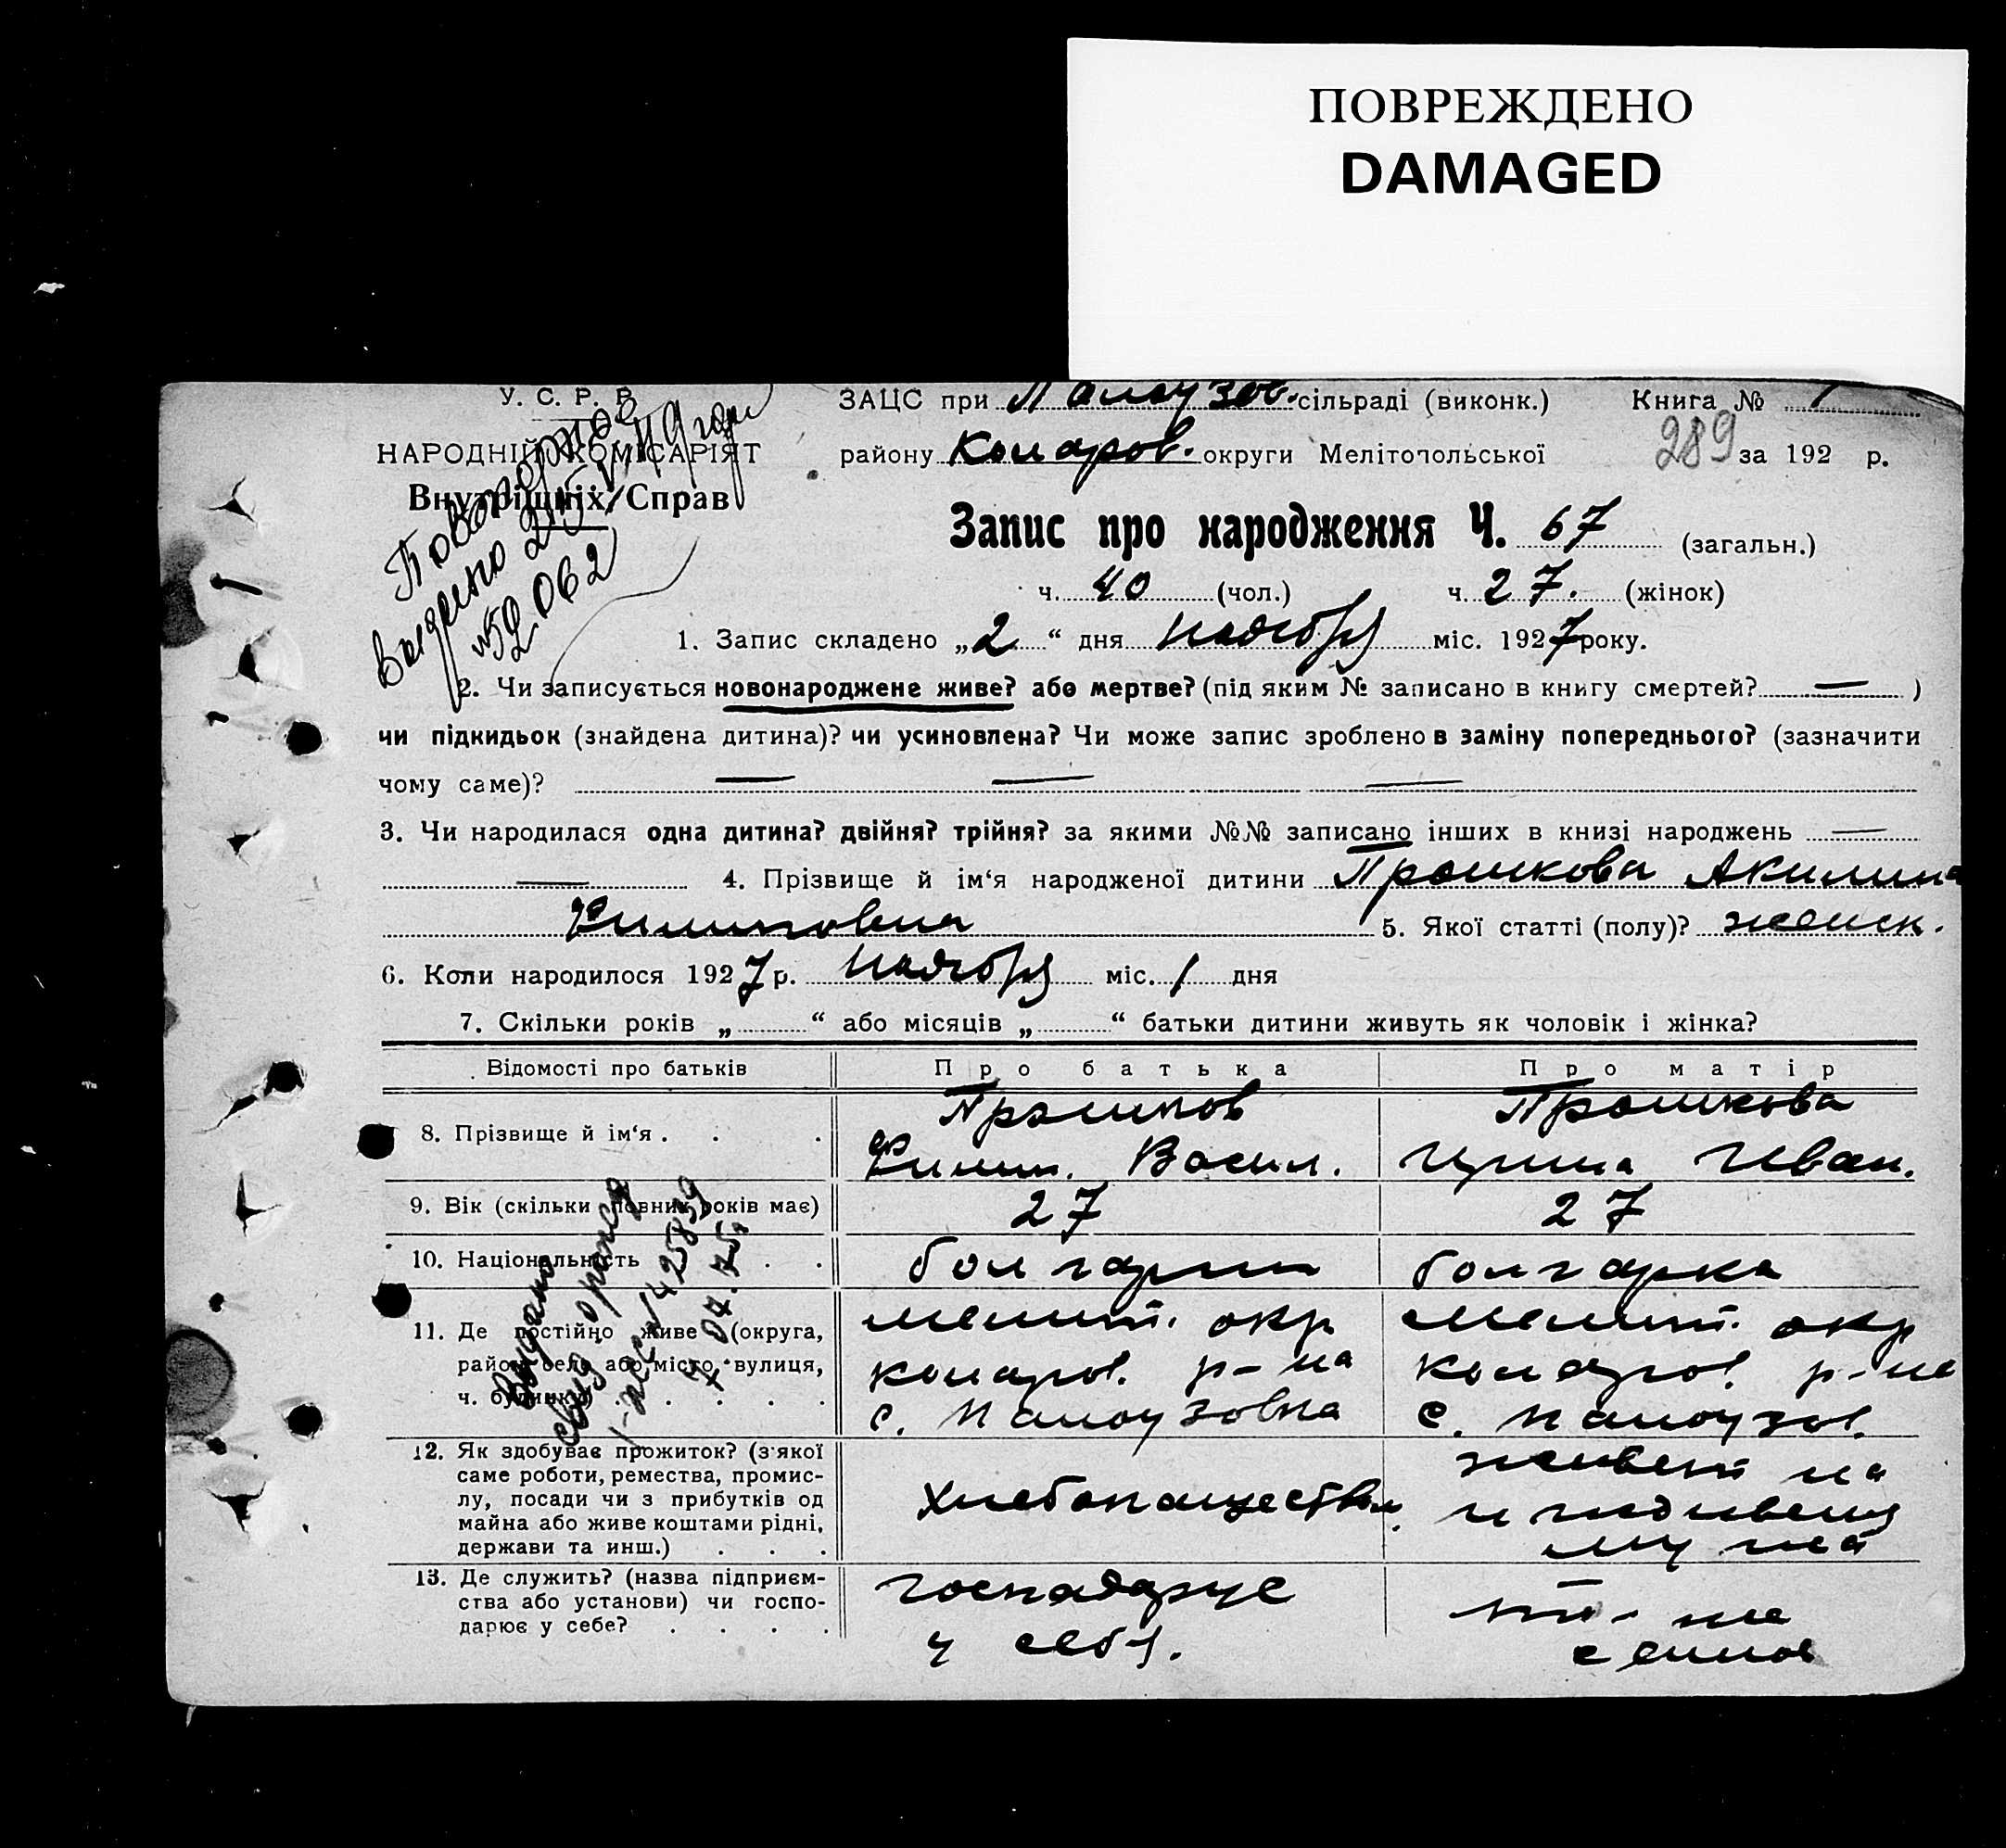 ПОВРЕЖДЕНО
DAMAGED
У. С. Р. Р.
НАРОДНІЙ КОМІСАРІЯТ
Внутрішніх Справ
Повторное
выдено
№ 52062
ЗАЦС при Палаузов. сільраді (виконк.) Книга № 1
району Комаров. округи Мелітопольської 289 за 192 р.
Запис про народження Ч. 67 (загальн.)
ч. 40 (чол.) ч. 27. (жінок)
1. Запис складено „2“ дня ноября міс. 1927 року.
2. Чи записується новонароджене живе? або мертве? (під яким № записано в книгу смертей? — )
чи підкидьок (знайдена дитина)? чи усиновлена? Чи може запис зроблено в заміну попереднього? (зазначити
чому саме)? — — —
3. Чи народилася одна дитина? двійня? трійня? за якими №№ записано інших в книзі народжень —
— 4. Прізвище й ім‘я народженої дитини Прошкова Акилина
Филиповна 5. Якої статті (полу)? женск.
6. Коли народилося 1927 р. ноября міс. 1 дня
7. Скільки років „ “ або місяців „ “ батьки дитини живуть як чоловік і жінка?
Відомості про батьків Про батька Про матір
8. Прізвище й ім‘я . . . Прошков Филип. Васил. Прошкова Ирина Иван.
9. Вік (скільки повних років має) 27 27
10. Національність . . болгарин болгарка
11. Де постійно живе (округа,
район, село або місто, вулиця,
ч. будинку) . . . . .
Мелит. окр
комаров. р-на
с. Палоузовка
Мелит. окр
комаров. р-на
с. Палоузов.
Выдано
12. Як здобуває прожиток? (з якої
саме роботи, ремества, промис-
лу, посади чи з прибутків од
майна або живе коштами рідні,
держави та инш.) . . .
Хлебопашеством.
живет на
иждивении
мужа
13. Де служить? (назва підприєм-
ства або установи) чи госпо-
дарює у себе? . . . .
господарує
у себя.